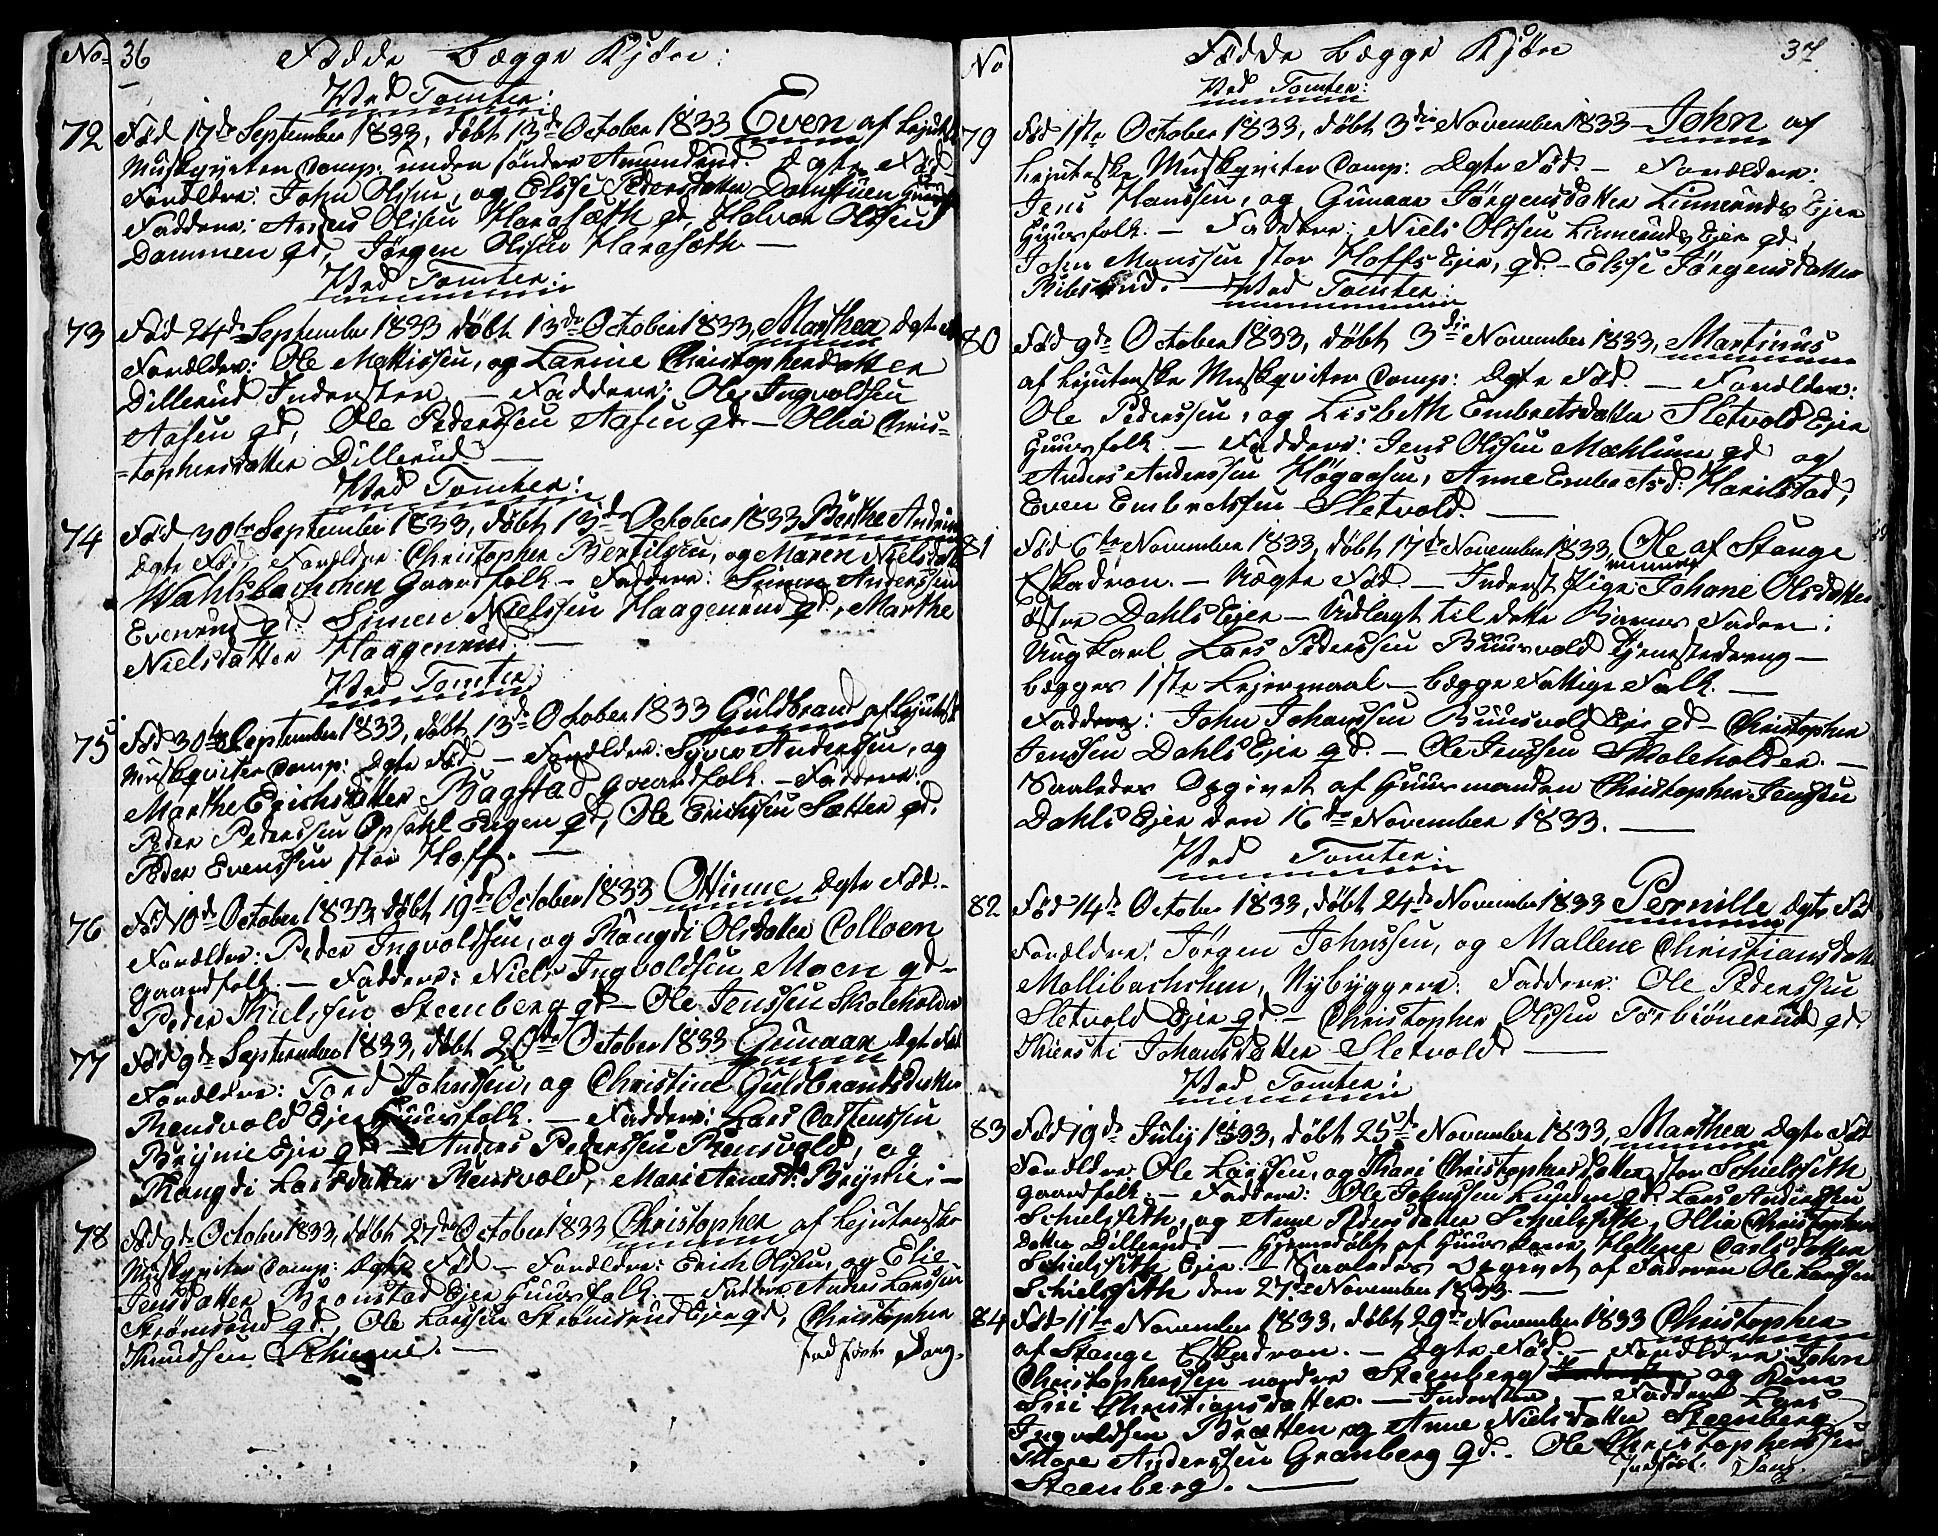 No 36 Fødde Begge Kjøn:
Ved Tomter:
72 Fød 17de September 1833, døbt 13de October 1833 Even af Lejutske
Muskqviter Comp: under söndre Amundrud. Ægte Fød
Forældre: John Olssen, og Elsse Pedersdatter Damstuen
Faddere: Anders Olssen Harasæth gd, Halvor Olssen
Dammen gd, Jörgen Olssen Harasæth —
Ved Tomter:
73 Fød 24de September 1833 døbt 13de October 1833, Marthea Ægte Fød
Forældre: Ole Mattissen, og Larine Christophersdatter
Dillerud Inderster — Faddere: Ole Ingvoldsen
Aasen gd, Ole Pederssen Aasen gd — Ollia Chris-
=tophersdatter Dillerud —
Ved Tomter:
74 Fød 30te September 1833, døbt 13de October 1833 Berthe Andrine
Ægte Fød Forældre: Christopher Bertilsen, og Maren Nielsdatter
Wahlsbachchen Gaardfolk — Faddere: Simen Anderssen
Evenrud gd: Simen Nielssen Haagenrud gd, Marthe
Nielsdatter Haagenrud. —
Ved Tomter
75 Fød 30te September 1833, døbt 13de October 1833 Guldbrand af Lejutske
Muskqviter Comp: Ægte Fød — Forældre: Syver Anderssen, og
Marthe Erichsdatter Bagstad gaardfolk. — Faddere:
Peder Pederssen Opsahl Engen gd, Ole Erichssen Sætter gd.
Peder Evenssen stor Hoff. —
76 Fød 10de October 1833, døbt 19de October 1833 Othinne Ægte Fød.
Forældre: Peder Ingvoldsen, og Rangdi Olsdatter Colloen
gaardfolk — Faddere: Niels Ingvoldsen Moen gd —
Peder Kielssen Steenberg gd — Ole Jenssen Skoleholder
77 Fød 9de September 1833, døbt 20de October 1833 Gunaar Ægte Fød
Forældre: Tord Johnssen, og Christine Guldbrandsdatter
Rensvold Ejer Huusfolk. — Faddere: Lars Castenssen
Brynie Ejer gd — Anders Pederssen Rensvold, og
Rangdi Larsdatter Rensvold, Mari Arnesd: Brynie. —
78 Fød 9de October 1833, døbt 27de October 1833 Christopher af Lejutenske
Muskqviter Comp: Ægte Fød — Forældre: Erich Olssen, og Elie
Jensdatter Bronstad Ejer Huusfolk. — Faddere Anders Larssen
Strömsrud gd, Ole Larssen Strömsrud Ejer gd, Christopher
Knudssen Schinne. — Indført Dorg.
No Fødde Begge Kjøn 37
Ved Tomter:
79 Fød 1ste October 1833, døbt 3die November 1833 — John af
Lejutenske Muskqviter Comp: Ægte Fød. — Forældre:
Jens Hanssen, og Gunaar Jörgensdatter Linnerud Ejer
Huusfolk. — Faddere: Niels Olssen Linnerud Ejer gd,
John Monssen stor Hoffs Ejer, gd. — Elsse Jörgensdatter
Ribsrud. — Ved Tomter:
80 Fød 9de October 1833, døbt 3die November 1833, Martinus
af Lejutenske Muskqviter Comp: Ægte Fød. — Forældre:
Ole Pederssen, og Lisbeth Embretsdatter Sletvold Ejer
Huusfolk — Faddere: Jens Olssen Mæhlum gd og
Anders Anderssen Högaasen, Anne Embretsd: Harilstad,
Even Embretssen Sletvold. —
81 Fød 6te November 1833, døbt 17de November 1833, Ole af Stange
Eskadron. — Uægte Fød — Inderst Pige Johane Olsdatter
östre Dahls Ejer — Udlagt til dette Barns Fader:
Ung karl Lars Pederssen Buusvold Tjenestedreng —
begges 1ste Lejermaal — begge Fattige Folk. —
Faddere: John Johanssen Buusvold Ejer gd — Christopher
Jenssen Dahls Ejer gd. — Ole Jenssen Skoleholder. —
Saaledes Opgivet af Huusmanden Christopher Jenssen
Dahls Ejer den 16de November 1833. —
Ved Tomter:
82 Fød 14de October 1833, døbt 24de November 1833 Pernille Ægte Fød
Forældre: Jörgen Johnssen, og Mallene Christiansdatter
Mollibachchen, Nybyggere: Faddere: Ole Pederssen
Sletvold Ejer gd. — Christopher Olssen Torbiönerud gd,
Kiersti Johansdatter Sletvold. —
Ved Tomter:
83 Fød 19de July 1833, døbt 25de November 1833, Marthea Ægte Fød
Forældre Ole Larssen, og Kari Christophersdatter stor Schielsseth
gaardfolk. — Faddere: Ole Johnssen Lunden gd. Lars Anderssen
Schielsseth, og Anne Pedersdatter Schielsseth, Ollia Christophers
Datter Dillerud. — Hjemdöbt af Huus kone Hellene Carlsdatter
Schielsseth Ejer. — Saaledes Opgivet af Faderen Ole Larssen
Schielsseth den 27de November 1833. —
84 Fød 11te November 1833, døbt 29de November 1833 Christopher
af Stange Eskadron. — Ægte Fød. — Forældre: John
Christopherssen nordre Steenberg og Kone
Siri Christiansdatter. — Inderster. — Faddere Lars
Ingvoldsen Bratten og Anne Nielsdatter Steenberg
Tore Anderssen Granberg gd. — Ole Christopherssen
Steenberg. — Indført. Dorg.